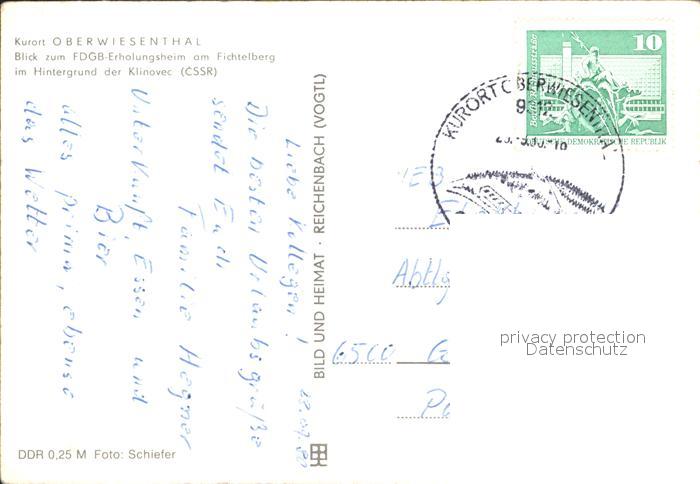 Kurort OBERWIESENTHAL
Blick zum FDGB-Erholungsheim am Fichtelberg
im Hintergrund der Klinovec (ČSSR)
Liebe Kollegen!
Die besten Urlaubsgrüße
sendet Euch
Familie
Unterkunft, Essen und
Bier
alles prima, ebenso
das Wetter
BILD UND HEIMAT · REICHENBACH (VOGTL)
DDR 0,25 M Foto: Schiefer
10
DEUTSCHE DEMOKRATISCHE REPUBLIK
KURORT OBERWIESENTHAL
Abtlg
6500 G
privacy protection
Datenschutz